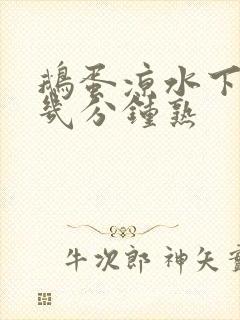 鹅蛋凉水下
几分钟熟
牛次郎 神矢